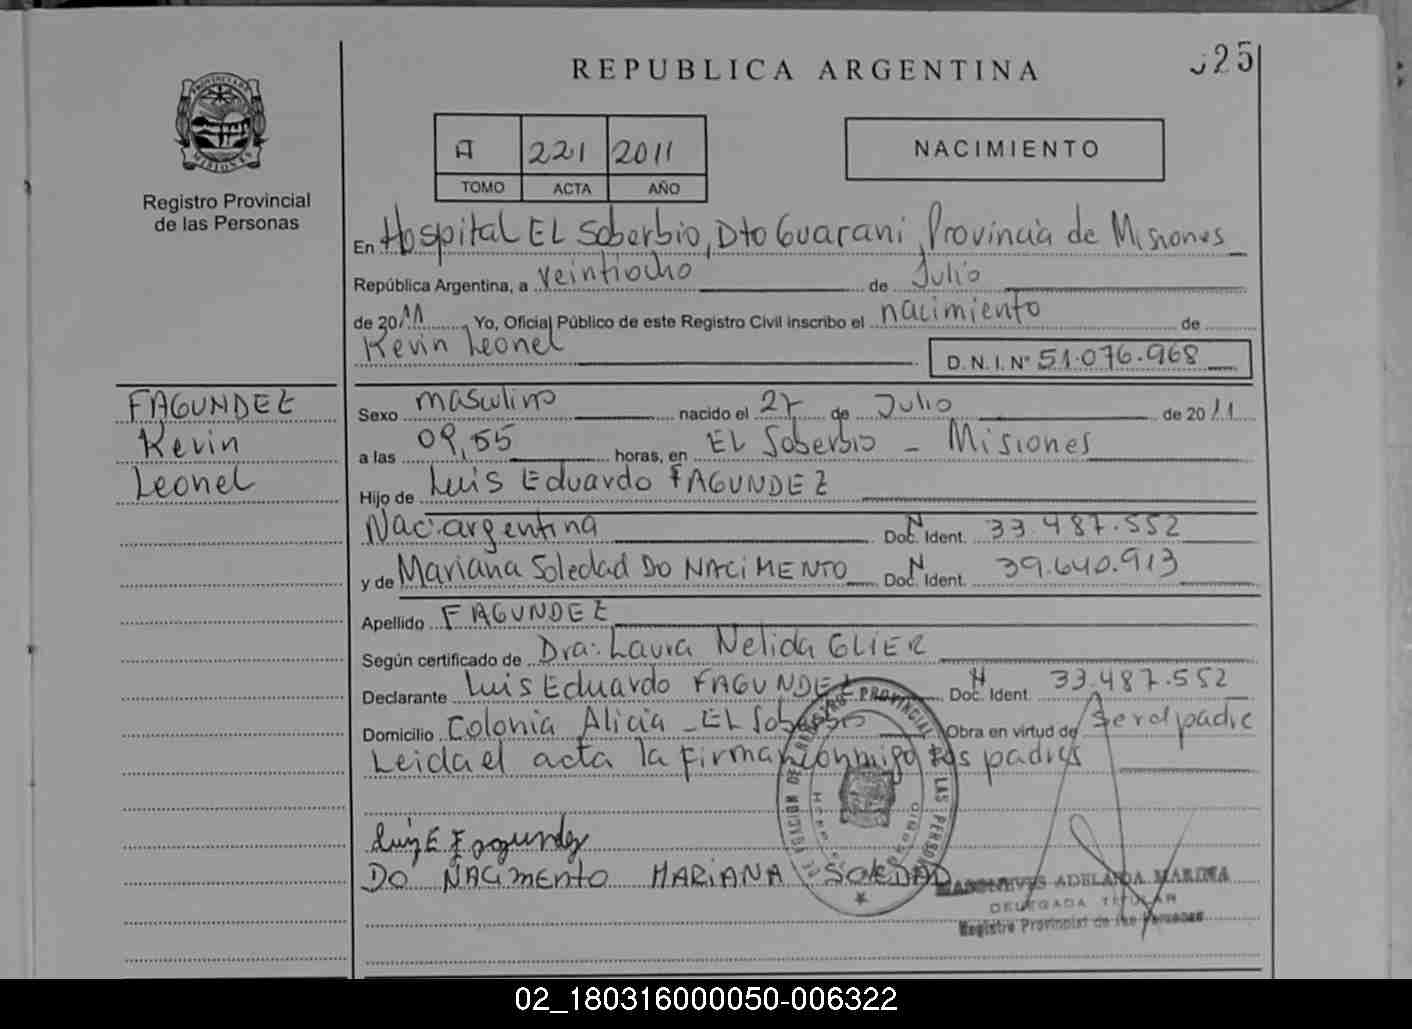 REPUBLICA ARGENTINA
025
Registro Provincial
de las Personas
A 221 2011
TOMO ACTA AÑO
NACIMIENTO
En Hospital EL Soberbio, Dto Guarani, Provincia de Misiones
República Argentina, a veintiocho de Julio
de 2011 Yo, Oficial Público de este Registro Civil inscribo el nacimiento de
Kevin Leonel D.N.I. Nº 51.076.968
FAGUNDEZ
Kevin
Leonel
Sexo masculino nacido el 27 de Julio de 2011
a las 09,55 horas, en EL Soberbio - Misiones
Hijo de Luis Eduardo FAGUNDEZ
Nac. argentina Doc. N Ident. 33.487.552
y de Mariana Soledad DO NACIMENTO Doc. N Ident. 39.640.913
Apellido FAGUNDEZ
Según certificado de Dra: Laura Nelida GLIER
Declarante Luis Eduardo FAGUNDEZ Doc. N Ident. 33.487.552
Domicilio Colonia Alicia - EL Soberbio Obra en virtud de Ser el padre
Leida el acta la firman conmigo los padres
Luiz E Fagundez
DO NACIMENTO MARIANA SOLEDAD
ADELAIDA MARINA
DELEGADA TITULAR
Registro Provincial de las Personas
02_180316000050-006322